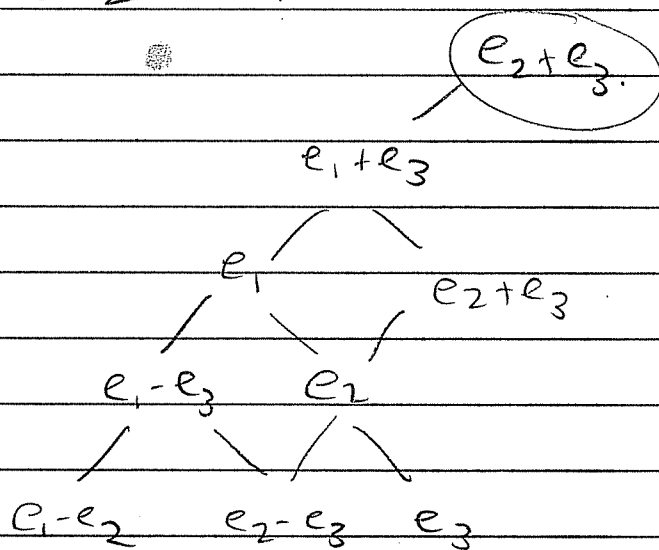 e₂+e₃.
e₁+e₃
e₁ e₂+e₃
e₁-e₃ e₂
e₁-e₂ e₂-e₃ e₃